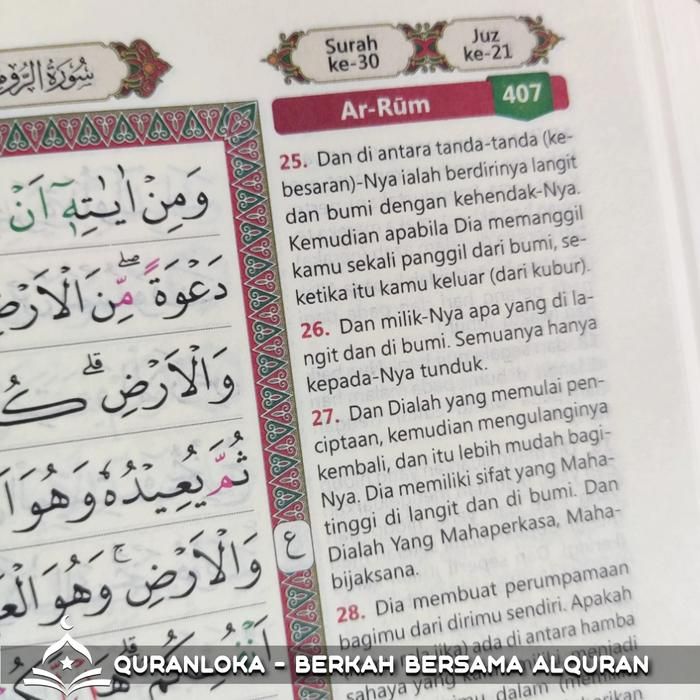 سُوْرَةُ الرُّوْمِ
Surah
ke-30
Juz
ke-21
Ar-Rūm
407
وَمِنْ اٰيٰتِهٖٓ اَنْ
دَعْوَةً مِّنَ الْاَرْضِ
وَالْاَرْضِ
ثُمَّ يُعِيْدُهٗ وَهُوَ
وَالْاَرْضِ وَهُوَ
ع
25. Dan di antara tanda-tanda (ke-
besaran)-Nya ialah berdirinya langit
dan bumi dengan kehendak-Nya.
Kemudian apabila Dia memanggil
kamu sekali panggil dari bumi, se-
ketika itu kamu keluar (dari kubur).
26. Dan milik-Nya apa yang di la-
ngit dan di bumi. Semuanya hanya
kepada-Nya tunduk.
27. Dan Dialah yang memulai pen-
ciptaan, kemudian mengulanginya
kembali, dan itu lebih mudah bagi-
Nya. Dia memiliki sifat yang Maha-
tinggi di langit dan di bumi. Dan
Dialah Yang Mahaperkasa, Maha-
bijaksana.
28. Dia membuat perumpamaan
bagimu dari dirimu sendiri. Apakah
ada di antara hamba
sahaya yang menjadi
QURANLOKA - BERKAH BERSAMA ALQURAN